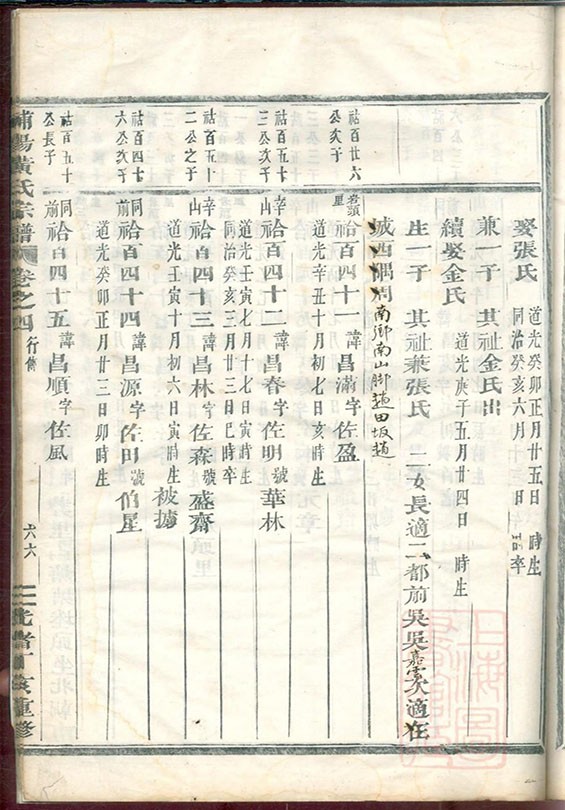 娶張氏 道光癸卯正月廿五日 時生
同治癸亥六月 日 時卒
兼一子 其祉金氏出
續娶金氏 道光庚子五月廿四日 時生
生一子 其祉兼張氏 二女長適二都前吳吳嘉雲次適在
城西隅周南鄉南山腳趙田坂趙
祜百廿六
公次子
岩頭里
祫百四十一 諱昌滿字佐盈
道光辛丑十月初七日亥時生
祜百五十
三公次子
辛山
祫百四十二 諱昌春字佐明號華林
道光壬寅七月十七日寅時生
同治癸亥三月廿三日巳時卒
祜百五十
二公之子
辛山
祫百四十三 諱昌林字佐森號盛齋
道光壬寅十月初六日寅時生 被擄
祜百四十
六公次子
同前
祫百四十四 諱昌源字佐田號伯星
道光癸卯正月廿三日卯時生
祜百五十
公長子
同前
祫百四十五 諱昌順字佐風
浦陽黃氏宗譜 卷之四 行傳 六六 光緒丁亥重修
上海圖